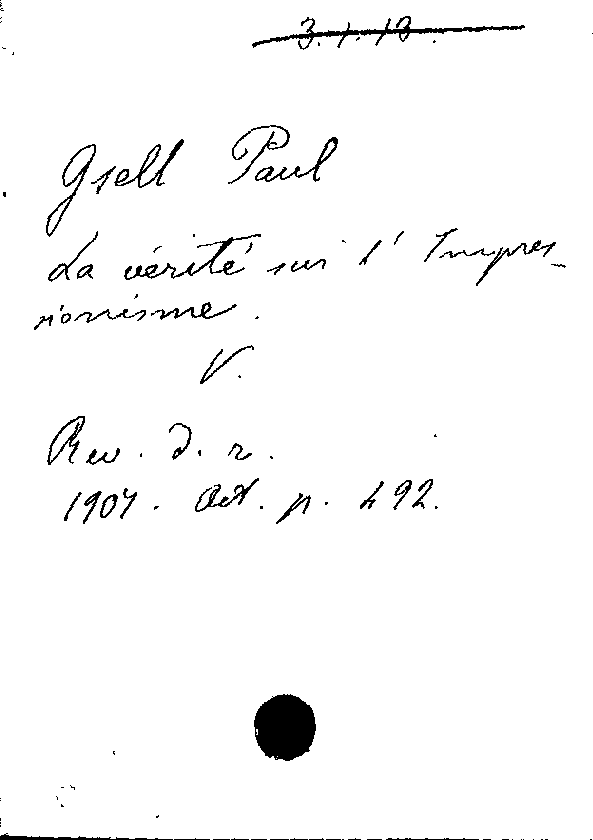 3.1.13.
Gsell Paul
La vérité sur l'Impres-
sionisme.
V.
Rev. d. r.
1907. Oct. p. 492.